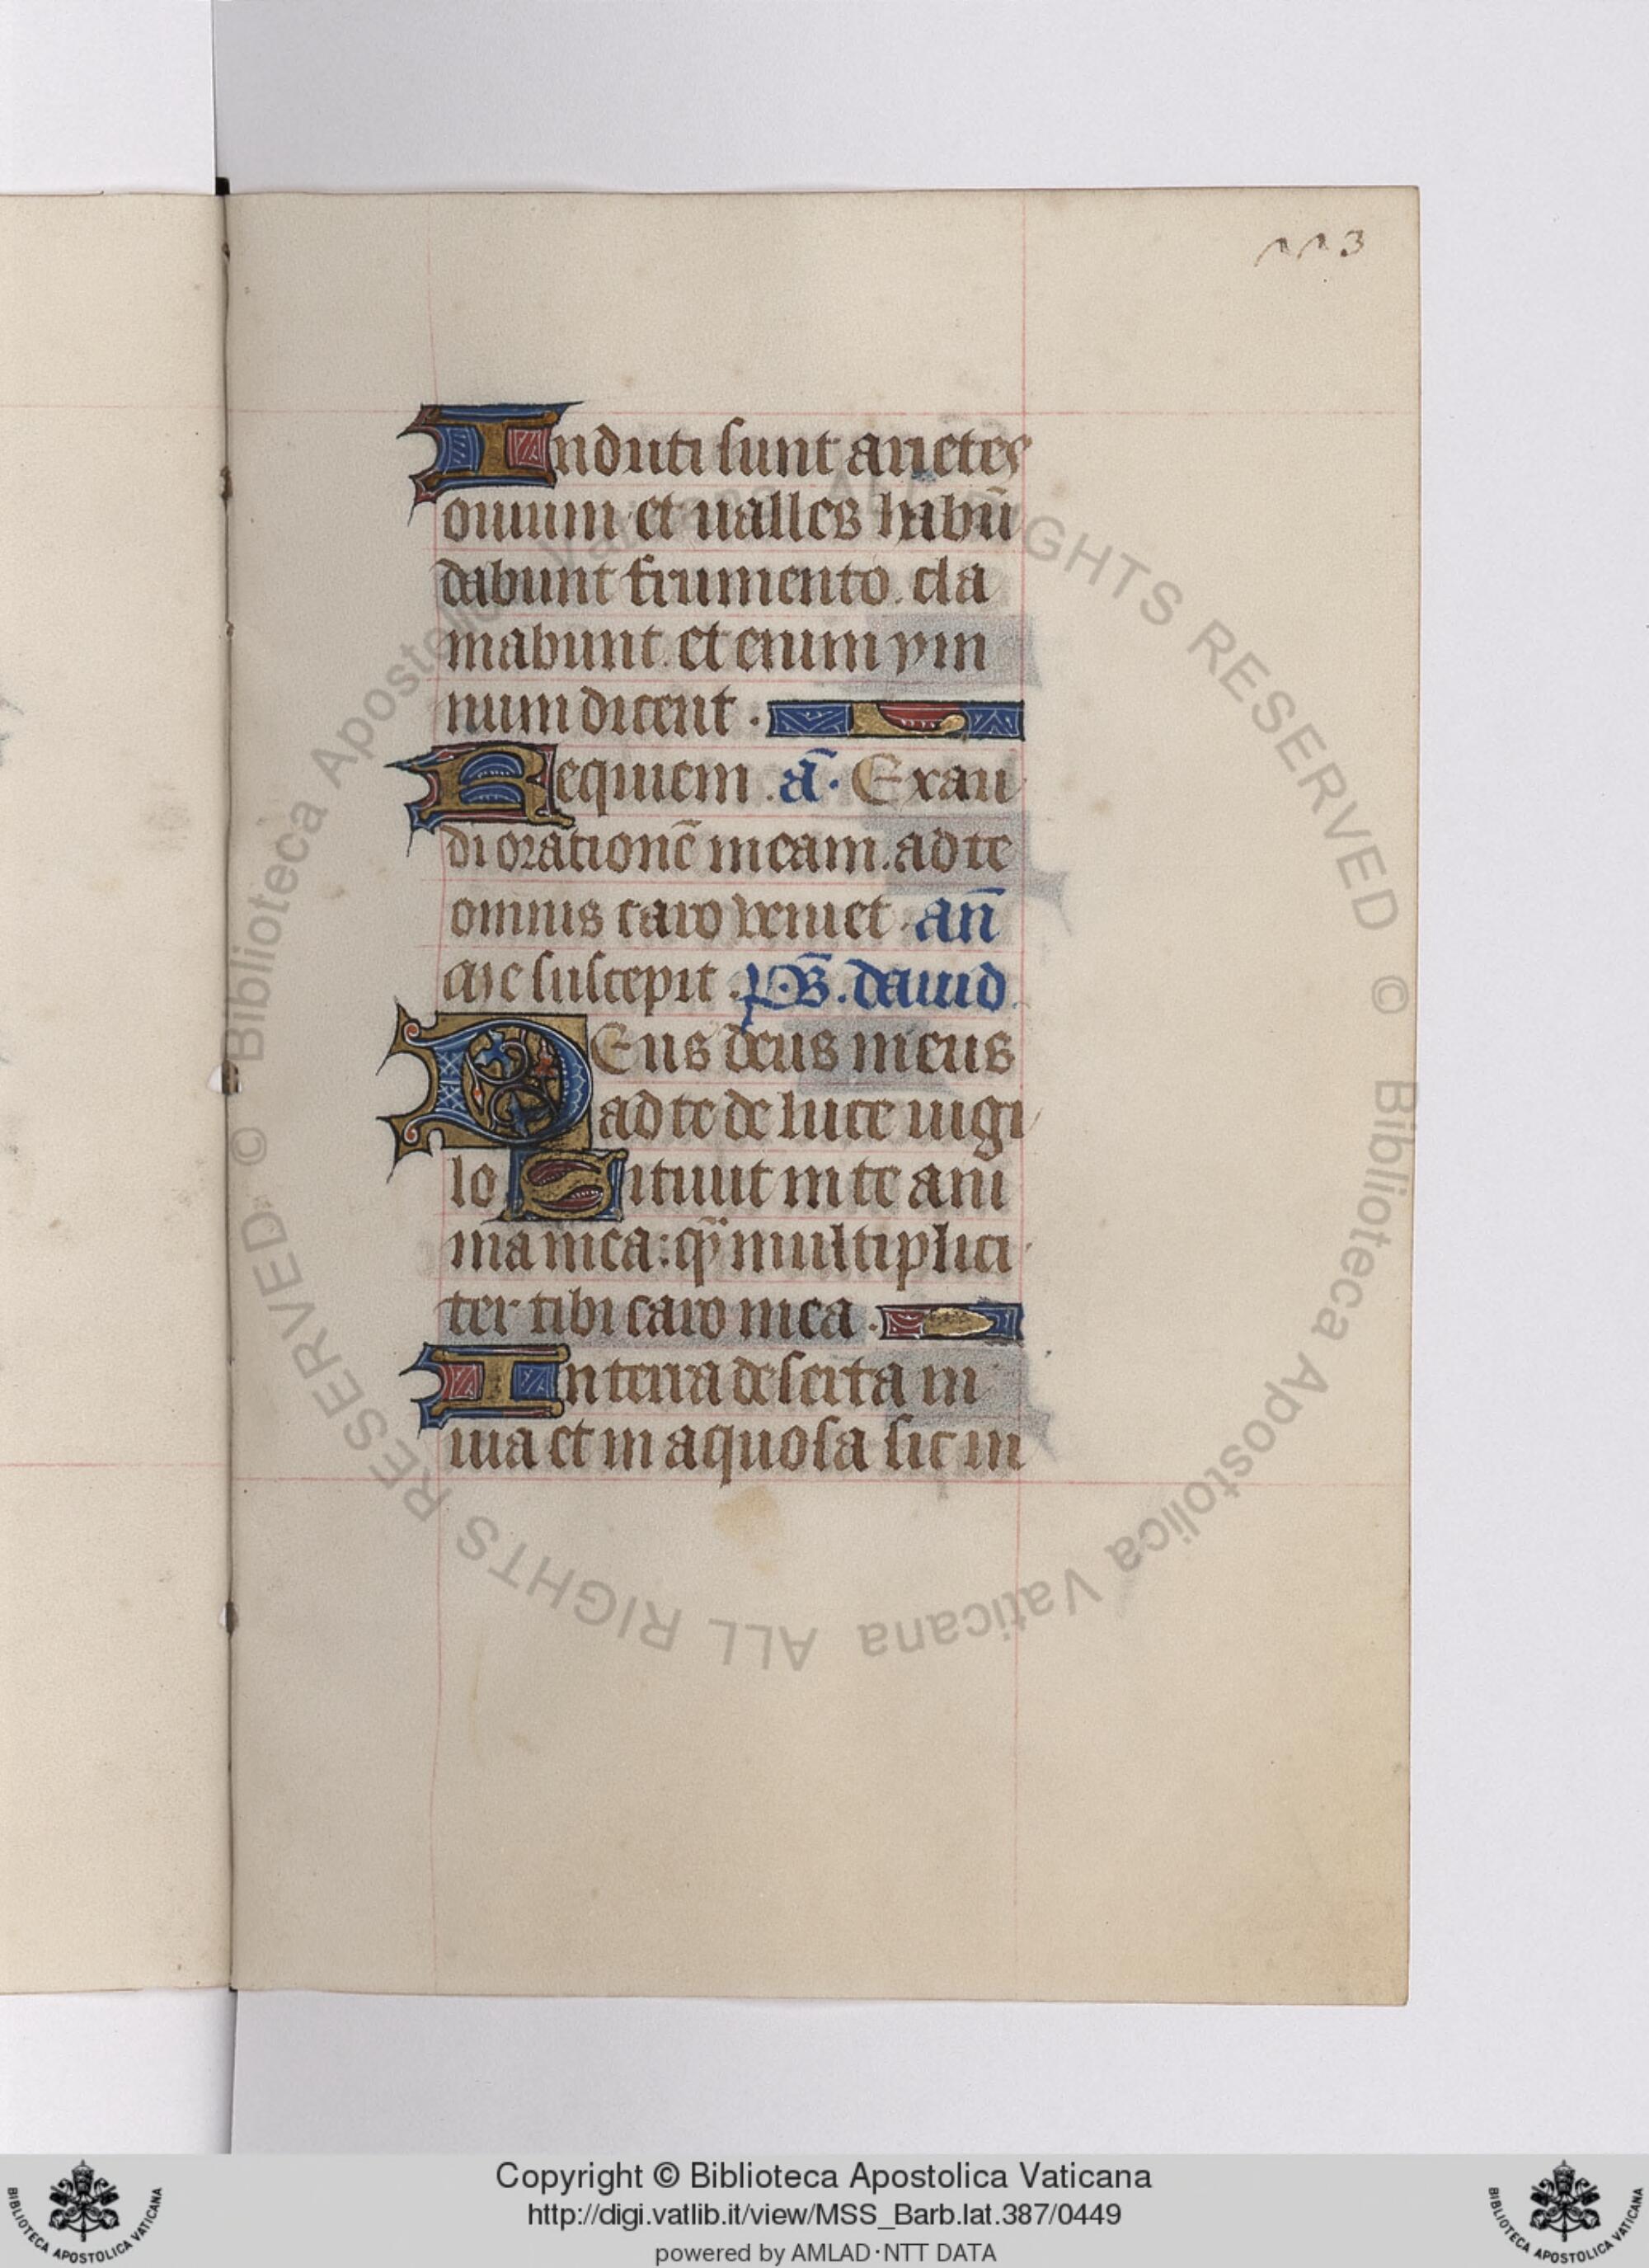 113
Induti sunt arietes
ouium et ualles habū
dabunt frumento. cla
mabunt. et enim ym
num dicent.
Requiem. a̅. Exau
di orationē meam. ad te
omnis caro veniet. an̅
Me suscepit. ps̅. dauid.
DEus deus meus
ad te de luce uigi
lo. Sitiuit in te ani
ma mea: q̄ multiplici
ter tibi caro mea.
In terra deserta in
uia et in aquosa sic in
© Biblioteca Apostolica Vaticana ALL RIGHTS RESERVED
© Biblioteca Apostolica Vaticana ALL RIGHTS RESERVED
Copyright © Biblioteca Apostolica Vaticana
http://digi.vatlib.it/view/MSS_Barb.lat.387/0449
powered by AMLAD·NTT DATA
BIBLIOTECA APOSTOLICA VATICANA
BIBLIOTECA APOSTOLICA VATICANA